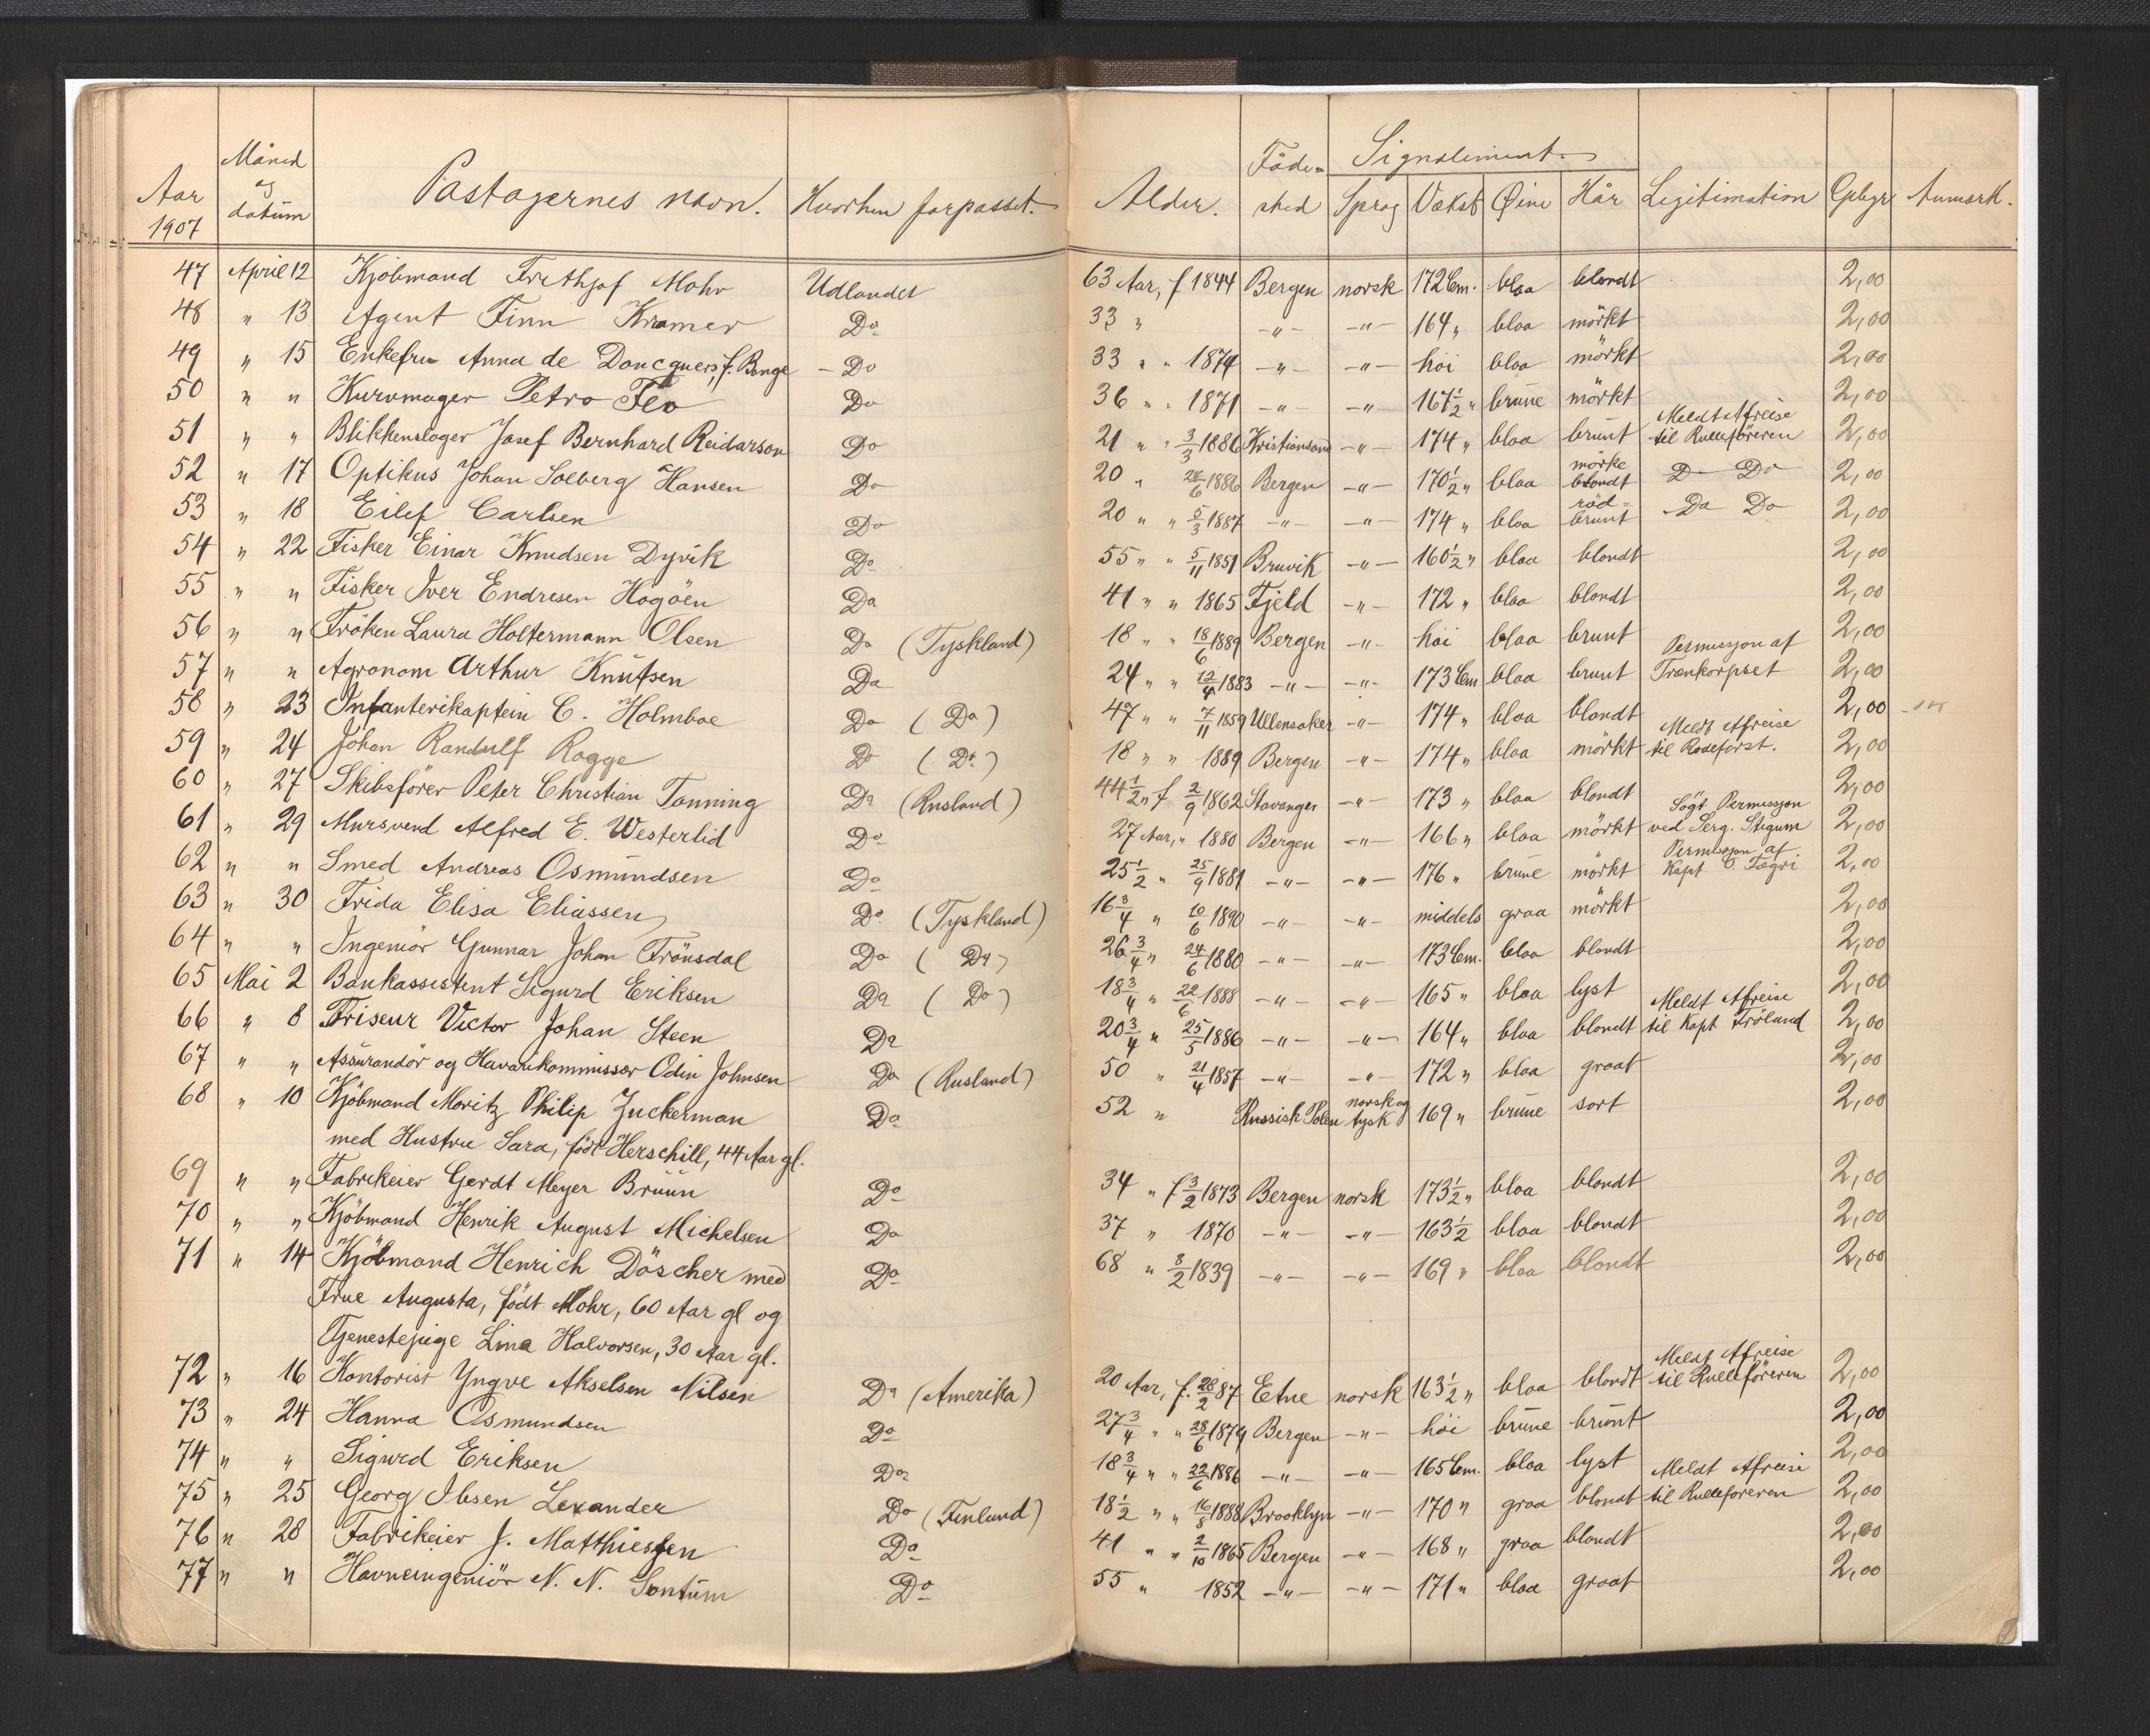 Aar 1907 | Måned og datum | Pastagernes navn. | Hvorhen farpasset. | Alder. | Føde-sted | Signalement. Sprog | Vækst | Øine | Hår | Legitimation | Gebyr | Anmærk.
47 April 12 Kjöbmand Frithjof Mohr Udlandet 63 Aar, f 1844 Bergen norsk 172 Cm. blaa blondt 2,00
48 " 13 Agent Finn Kramer Do 33 " -"- -"- 164 " blaa mörkt 2,00
49 " 15 Enkefru Anna de Doncquers, f. Bonge - Do 33 " " 1874 -"- -"- höi blaa mörkt 2,00
50 " " Kurvmager Petro Flo Do 36 " " 1871 -"- -"- 167½ " brune mörkt 2,00
51 " " Blikkenslager Josef Bernhard Reidarson Do 21 " " 3/3 1886 Kristiansand -"- 174 " blaa brunt Meldt Afreise til Rulleföreren 2,00
52 " 17 Optikus Johan Solberg Hansen Do 20 " 24/6 1886 Bergen -"- 170½ " blaa mörke blondt D- Do 2,00
53 " 18 Eilef Carlsen Do 20 " " 5/3 1887 -"- -"- 174 " blaa röd-brunt Do Do 2,00
54 " 22 Fisker Einar Knudsen Dyvik Do 55 " " 5/11 1851 Bruvik -"- 160½ " blaa blondt 2,00
55 " " Fisker Iver Endresen Hogöen Do 41 " " 1865 Fjeld -"- 172 " blaa blondt 2,00
56 " " Fröken Laura Holtermann Olsen Do (Tyskland) 18 " " 18/6 1889 Bergen -"- höi blaa brunt 2,00
57 " " Agronom Arthur Knutsen Do 24 " " 12/4 1883 -"- -"- 173 Cm blaa brunt Permisjon af Trænkorpset 2,00
58 " 23 Infanterikaptein C. Holmboe Do (Do) 47 " " 7/11 1859 Ullensaker -"- 174 " blaa blondt 2,00
59 " 24 Johan Randulf Rogge Do (Do) 18 " " 1889 Bergen -"- 174 " blaa mörkt Meldt Afreise til Rodeförst. 2,00
60 " 27 Skibsförer Peter Christian Tonning Do (Rusland) 44½ " f 2/9 1862 Stavanger -"- 173 " blaa blondt 2,00
61 " 29 Mursvend Alfred E. Westerlid Do 27 Aar, " 1880 Bergen -"- 166 " blaa mörkt Sögt Permisjon ved Serg. Stigum 2,00
62 " " Smed Andreas Osmundsen Do 25½ " 25/9 1881 -"- -"- 176 " brune mörkt Permisjon af Kapt. C. Fægri 2,00
63 " 30 Frida Elisa Eliassen Do (Tyskland) 16¾ " 10/6 1890 -"- -"- middels graa mörkt 2,00
64 " " Ingeniör Gunnar Johan Frönsdal Do (Do) 26¾ " 24/6 1880 -"- -"- 173 Cm. blaa blondt 2,00
65 Mai 2 Bankassistent Sigurd Eriksen Do (Do) 18¾ " 22/6 1888 -"- -"- 165 " blaa lyst 2,00
66 " 8 Friseur Victor Johan Steen Do 20¾ " 25/5 1886 -"- -"- 164 " blaa blondt Meldt Afreise til Kapt Fröland 2,00
67 " " Assurandör og Havarikommissær Odin Johnsen Do (Rusland) 50 " 21/4 1857 -"- -"- 172 " blaa graat 2,00
68 " 10 Kjöbmand Moritz Philip Zuckerman Do 52 " Russisk Polen norsk og tysk 169 " brune sort 2,00
med Hustru Sara, född Herschill, 44 Aar gl.
69 " " Fabrikeier Gerdt Meyer Bruun Do 34 " f 3/2 1873 Bergen norsk 173½ " blaa blondt 2,00
70 " " Kjöbmand Henrik August Michelsen Do 37 " 1870 -"- -"- 163½ blaa blondt 2,00
71 " 14 Kjöbmand Henrich Döscher med Do 68 " 8/2 1839 -"- -"- 169 " blaa blondt 2,00
Frue Augusta, födt Mohr, 60 Aar gl og
Tjenestepige Lina Halvorsen, 30 Aar gl.
72 " 16 Kontorist Yngve Akselsen Nilsen Do (Amerika) 20 Aar, f. 28/2 87 Etne norsk 163½ " blaa blondt Meldt Afreise til Rulleföreren 2,00
73 " 24 Hanna Osmundsen Do 27¾ " " 28/6 1879 Bergen -"- höi brune brunt 2,00
74 " " Sigurd Eriksen Do 18¾ " " 22/6 1886 -"- -"- 165 Cm. blaa lyst 2,00
75 " 25 Georg Ibsen Lexander Do (Finland) 18½ " " 16/8 1888 Brooklyn -"- 170 " graa blondt Meldt Afreise til Rulleföreren 2,00
76 " 28 Fabrikeier J. Matthiessen Do 41 " " 2/10 1865 Bergen -"- 168 " graa blondt 2,00
77 " " Havneingeniör N. N. Sontum Do 55 " 1852 -"- -"- 171 " blaa graat 2,00